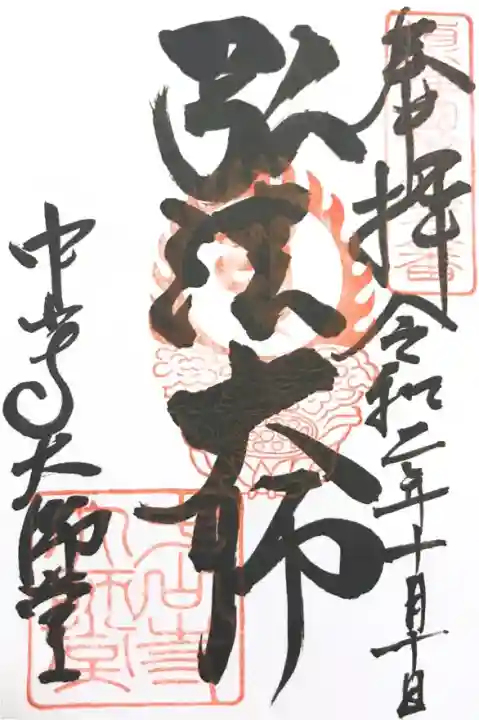 奉拝 令和二年十月十日
弘法大師
中山寺大師堂